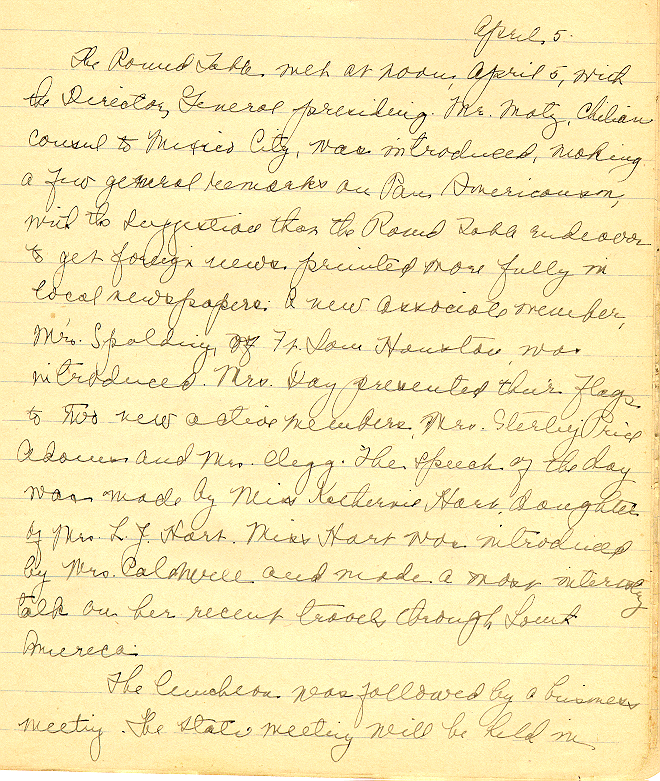 April 5.
The Round Table met at noon, April 5, with
the Director General presiding. Mr. Motz, Chilian
consul to Mexico City, was introduced, making
a few general remarks on Pan Americanism,
with the suggestion that the Round Table endeavor
to get foreign news printed more fully in
local newspapers. A new associate member,
Mrs. Spalding, of Ft. Sam Houston was
introduced. Mrs. Day presented their flags
to two new active members, Mrs. Sterling Price
Adams and Mrs. Clegg. The speech of the day
was made by Miss Katherine Hart, daughter
of Mrs. L. J. Hart. Miss Hart was introduced
by Mrs. Caldwell and made a most interesting
talk on her recent travels through South
America.
The luncheon was followed by a business
meeting. The state meeting will be held in